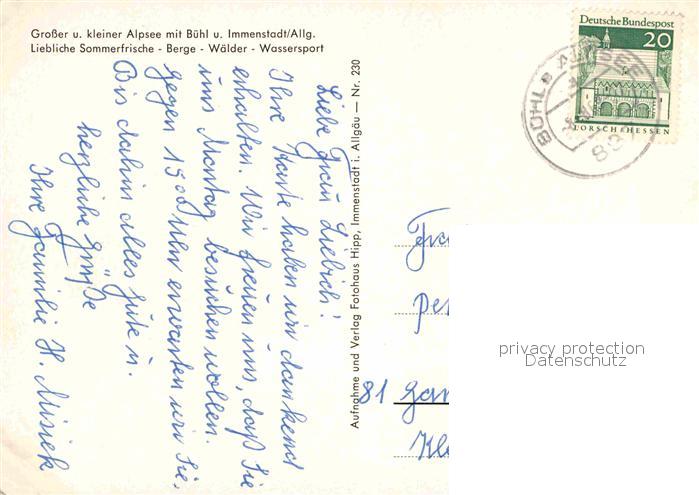 Großer u. kleiner Alpsee mit Bühl u. Immenstadt/Allg.
Liebliche Sommerfrische - Berge - Wälder - Wassersport
Deutsche Bundespost
20
LORSCH/HESSEN
BÜHL a ALPSEE
897
Liebe Frau Liebich!
Ihre Karte haben wir dankend
erhalten. Wir freuen uns, daß Sie
uns Montag besuchen wollen.
gegen 15 00 Uhr erwarten wir Sie.
Bis dahin alles Gute u.
herzliche Grüße
Ihre Familie H. Misiek
Aufnahme und Verlag Fotohaus Hipp, Immenstadt i. Allgäu — Nr. 230
81
privacy protection
Datenschutz